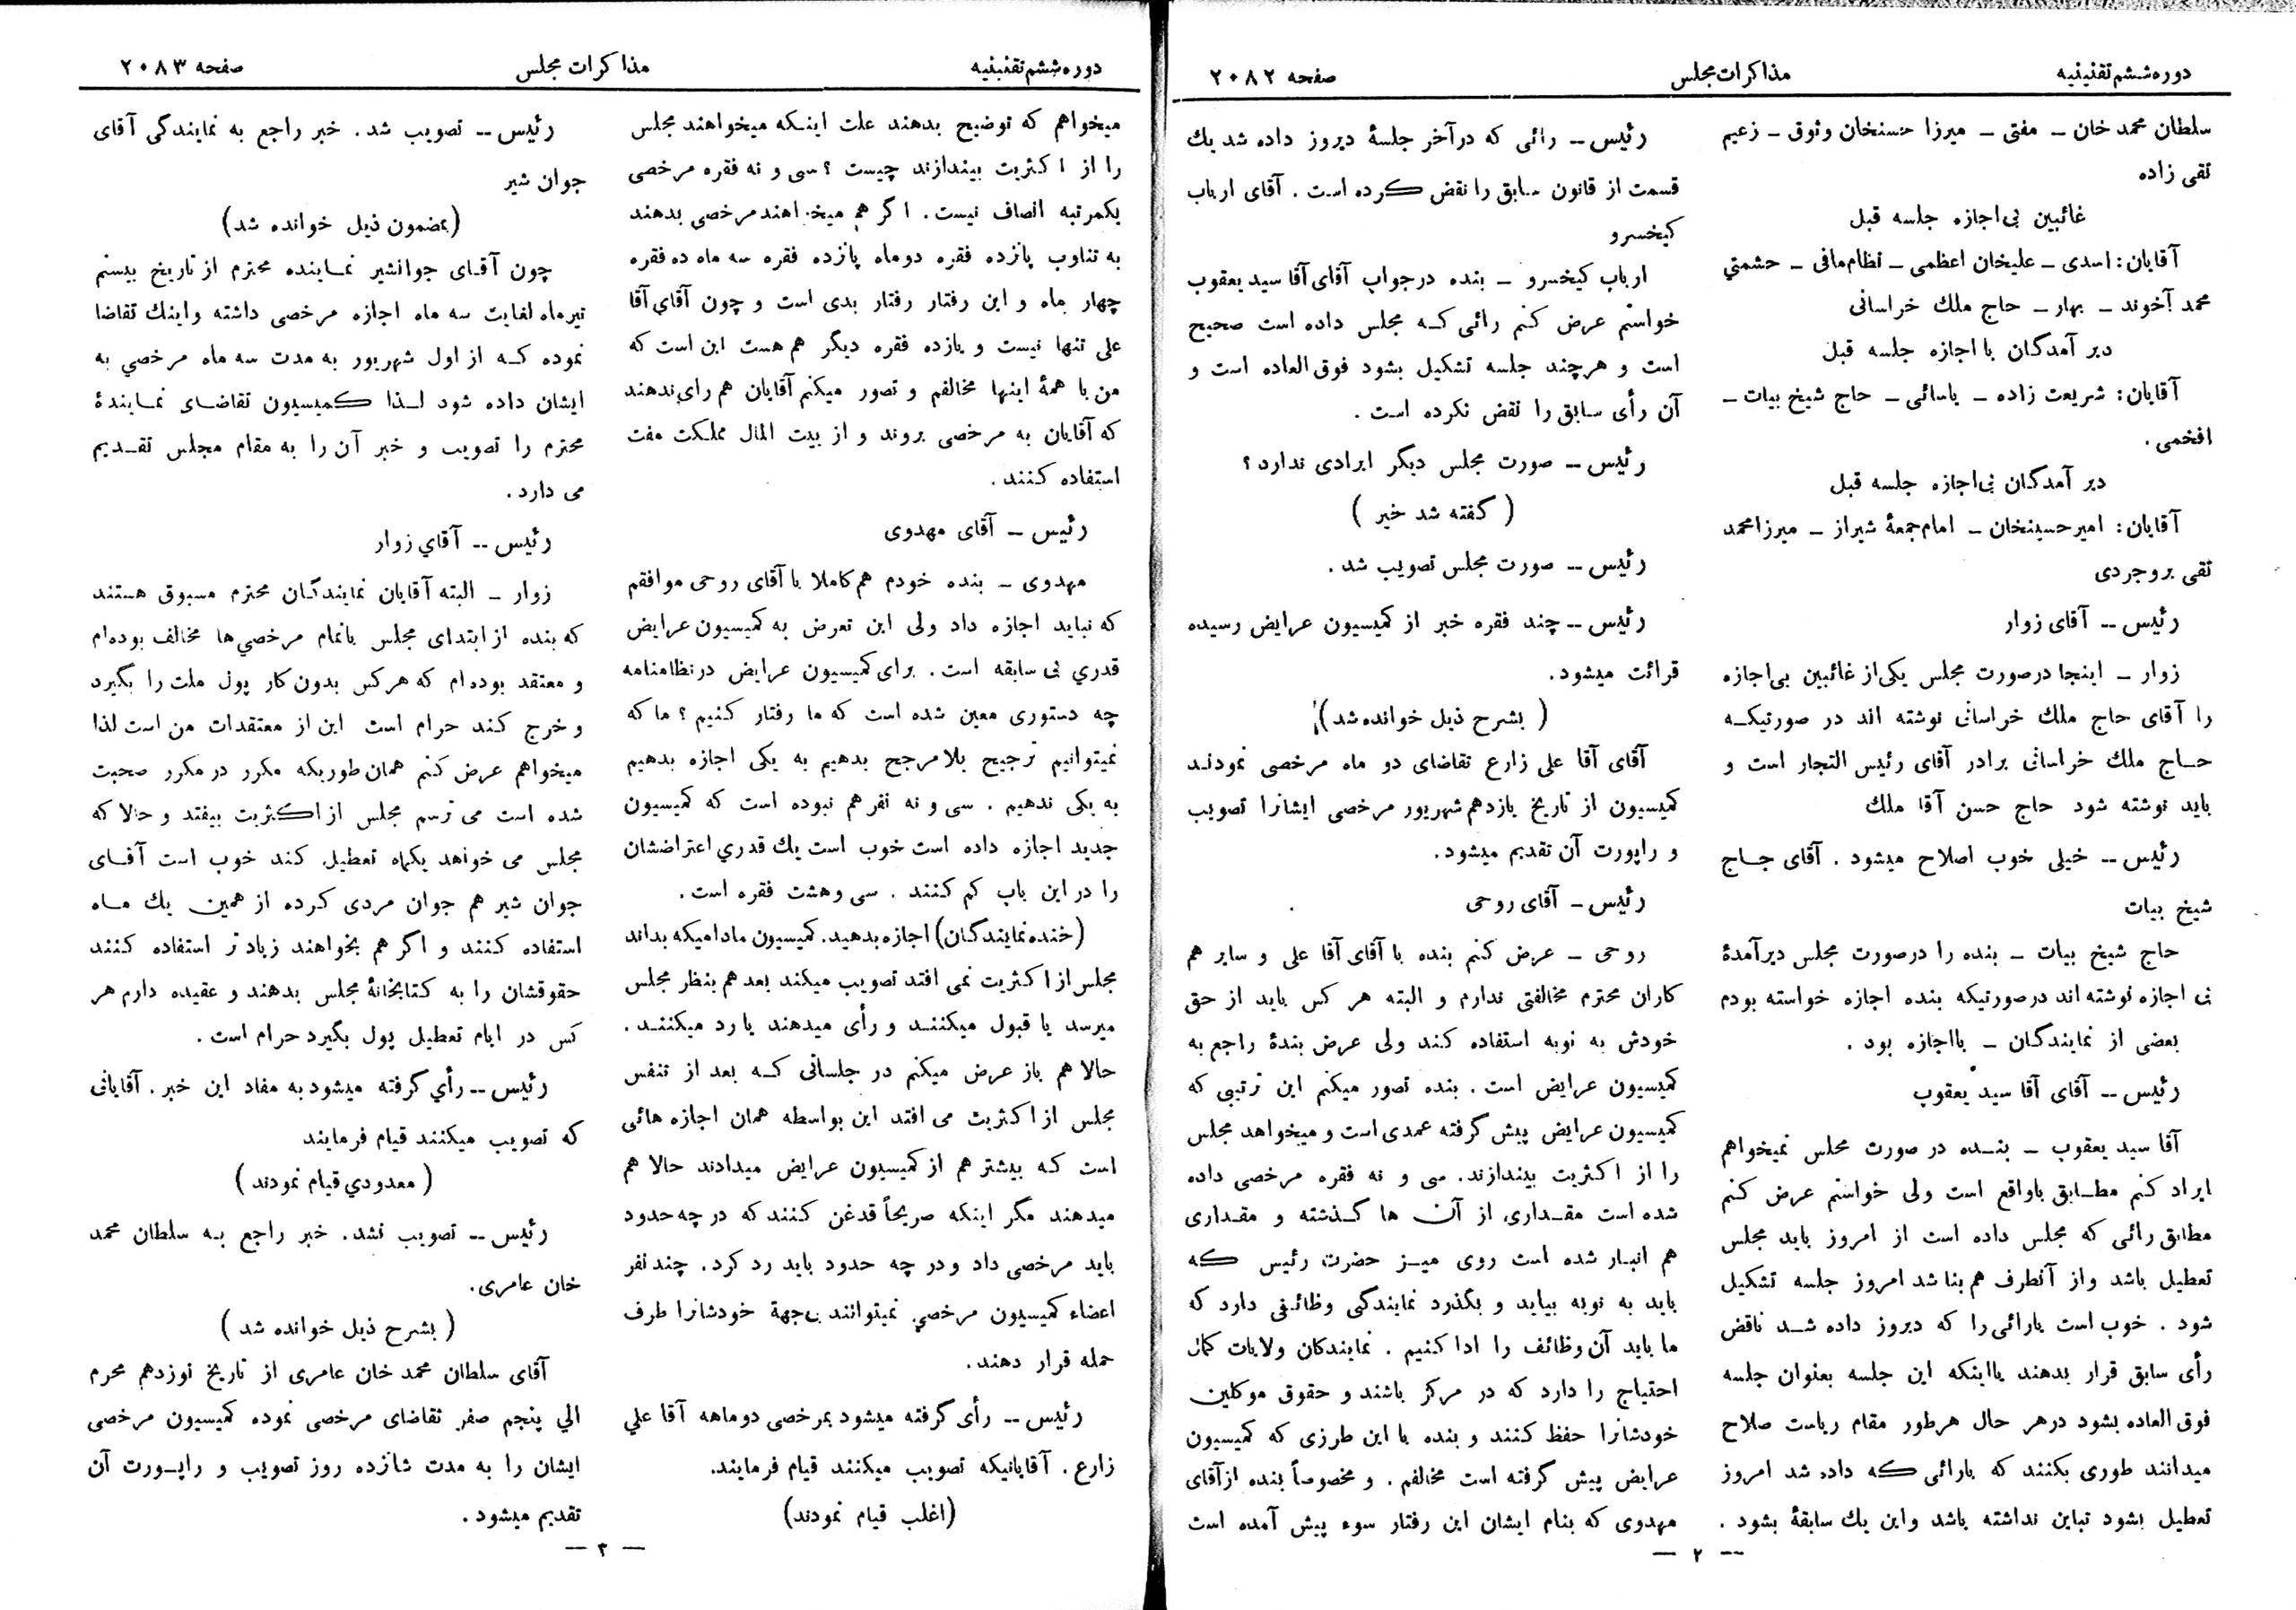 دوره ششم تقنینیه
مذاکرات مجلس
صفحه ۲۰۸۲
سلطان محمد خان ــ مفتی ــ میرزا حسنخان وثوق ــ زعیم
تقی زاده
غائبین بی‌اجازه جلسه قبل
آقایان: اسدی ــ علیخان اعظمی ــ نظام مافی ــ حشمتي
محمد آخوند ــ بهار ــ حاج ملك خراسانی
دیر آمدگان با اجازه جلسه قبل
آقایان: شریعت زاده ــ یاسائی ــ حاج شیخ بیات ــ
افخمی .
دیر آمدگان بی‌اجازه جلسه قبل
آقایان: امیر حسینخان ــ امام جمعۀ شیراز ــ میرزا محمد
تقی بروجردی
رئیس ــ آقای زوار
زوار ــ اینجا درصورت مجلس یکی‌از غائبین بی‌اجازه
را آقای حاج ملك خراسانی نوشته اند در صورتیکـه
حـاج ملك خراسانی برادر آقای رئیس التجار است و
باید نوشته شود حاج حسن آقا ملك
رئیس ــ خیلی خوب اصلاح میشود . آقای حـاج
شیخ بیات
حاج شیخ بیات ــ بنده را درصورت مجلس دیرآمدۀ
بی اجازه نوشته اند درصورتیکه بنده اجازه خواسته بودم
بعضی از نمایندگان ــ بااجازه بود .
رئیس ــ آقای آقا سید یعقوب
آقا سید یعقوب ــ بنـده در صورت مجلس نمیخواهم
ایراد کنم مطـابق باواقع است ولی خواستم عرض کنم
مطابق رائی که مجلس داده است از امروز باید مجلس
تعطیل باشد واز آنطرف هم بنا شد امروز جلسه تشکیل
شود . خوب است یارائی را که دیروز داده شـد ناقض
رأی سابق قرار بدهند یااینکه این جلسه بعنوان جلسه
فوق العاده بشود درهر حال هرطور مقام ریاست صلاح
میدانند طوری بکنند که بارائی کـه داده شد امروز
تعطیل بشود تباین نداشته باشد واین یك سابقۀ بشود .
رئیس ــ رائی که درآخر جلسۀ دیروز داده شد یك
قسمت از قانون سابق را نقض کرده است . آقای ارباب
کیخسرو
ارباب کیخسرو ــ بنده درجواب آقای آقا سید یعقوب
خواستم عرض کنم رائی کـه مجلس داده است صحیح
است و هرچند جلسه تشکیل بشود فوق العاده است و
آن رأی سابق را نقض نکرده است .
رئیس ــ صورت مجلس دیگر ایرادی ندارد ؟
( گفته شد خیر )
رئیس ــ صورت مجلس تصویب شد .
رئیس ــ چند فقره خبر از کمیسیون عرایض رسیده
قرائت میشود .
( بشرح ذیل خوانده شد )
آقای آقا علی زارع تقاضای دو ماه مرخصی نمودند
کمیسیون از تاریخ یازدهم شهریور مرخصی ایشانرا تصویب
و راپورت آن تقدیم میشود.
رئیس ــ آقای روحی
روحی ــ عرض کنم بنده با آقای آقا علی و سایر هم
کاران محترم مخالفتی ندارم و البته هر کس باید از حق
خودش به نوبه استفاده کند ولی عرض بندۀ راجع به
کمیسیون عرایض است . بنده تصور میکنم این ترتیبی که
کمیسیون عرایض پیش گرفته عمدی است و میخواهد مجلس
را از اکثریت بیندازند. سی و نه فقره مرخصی داده
شده است مقـداری از آن ها گـذشته و مقـداری
هم انبـار شده است روی میـز حضرت رئیس کـه
باید به نوبه بیاید و بگذرد نمایندگی وظائفی دارد که
ما باید آن وظائف را ادا کنیم . نمایندگان ولایات کمال
احتیاج را دارد که در مرکز باشند و حقوق موکلین
خودشانرا حفظ کنند و بنده با این طرزی که کمیسیون
عرایض پیش گرفته است مخالفم . و مخصوصاً بنده ازآقای
مهدوی که بنام ایشان این رفتار سوء پیش آمده است
ــ ۲ ــ
دوره ششم تقنینیه
مذاکرات مجلس
صفحه ۲۰۸۳
میخواهم که توضیح بدهند علت اینـکه میخواهند مجلس
را از اکثریت بیندازند چیست ؟ سی و نه فقره مرخصی
یکمرتبه انصاف نیست . اگر هم میخواهند مرخصی بدهند
به تناوب پانزده فقره دوماه پانزده فقره سه ماه ده فقره
چهار ماه و این رفتار رفتار بدی است و چون آقای آقا
علی تنها نیست و یازده فقره دیگر هم هست این است که
من با همۀ اینها مخالفم و تصور میکنم آقایان هم رای ندهند
که آقایان به مرخصی بروند و از بیت المال مملکت مفت
استفاده کنند .
رئیس ــ آقای مهدوی
مهدوی ــ بنده خودم هم کاملا با آقای روحی موافقم
که نباید اجازه داد ولی این تعرض به کمیسیون عرایض
قدري بی سابقه است . برای کمیسیون عرایض درنظامنامه
چه دستوری معین شده است که ما رفتار کنیم ؟ ما که
نمیتوانیم ترجیح بلا مرجح بدهیم به یکی اجازه بدهیم
به یکی ندهیم . سی و نه نفر هم نبوده است که کمیسیون
جدید اجازه داده است خوب است یك قدري اعتراضشان
را در این باب کم کنند . سی وهشت فقره است .
(خنده نمایندگان) اجازه بدهید. کمیسیون مادامیکه بداند
مجلس از اکثریت نمی افتد تصویب میکند بعد هم بنظر مجلس
میرسد یا قبول میکننـد و رأی میدهند یا رد میکننـد .
حالا هم باز عرض میکنم در جلساتی کـه بعد از تنفس
مجلس از اکثریت می افتد این بواسطه همان اجازه هائی
است که بیشتر هم از کمیسیون عرایض میدادند حالا هم
میدهند مگر اینکه صریحاً قدغن کنند که در چه حدود
باید مرخصی داد و در چه حدود باید رد کرد. چند نفر
اعضاء کمیسیون مرخصي نمیتوانند بی‌جهة خودشانرا طرف
حمله قرار دهند.
رئیس ــ رأی گرفته میشود بمرخصی دوماهه آقا علي
زارع . آقایانیکه تصویب میکنند قیام فرمایند.
(اغلب قیام نمودند)
رئیس ــ تصویب شد . خبر راجع به نمایندگی آقای
جوان شیر
(بمضمون ذیل خوانده شد)
چون آقـای جوانشیر نمـاینده محترم از تاریخ بیستم
تیرماه لغایت سه ماه اجازه مرخصی داشته واینك تقاضا
نموده کـه از اول شهریور به مدت سه ماه مرخصي به
ایشان داده شود لـذا کمیسیون تقاضـای نمـایندۀ
محترم را تصویب و خبر آن را به مقام مجلس تقـدیم
می دارد .
رئیس ــ آقاي زوار
زوار ــ البته آقایان نمایندگان محترم مسبوق هستند
که بنده از ابتدای مجلس باتمام مرخصي ها مخالف بوده‌ام
و معتقد بوده‌ام که هرکس بدون کار پول ملت را بگیرد
و خرج کند حرام است این از معتقدات من است لذا
میخواهم عرض کنم همان طوریکه مکرر در مکرر صحبت
شده است می ترسم مجلس از اکثریت بیفتد و حالا که
مجلس می خواهد یکماه تعطیل کند خوب است آقـای
جوان شیر هم جوان مردی کرده از همین یك مـاه
استفاده کنند و اگر هم بخواهند زیادتر استفاده کنند
حقوقشان را به کتابخانۀ مجلس بدهند و عقیده دارم هر
کس در ایام تعطیل پول بگیرد حرام است .
رئیس ــ رأي گرفته میشود به مفاد این خبر . آقایانی
که تصویب میکنند قیام فرمایند
( معدودي قیام نمودند )
رئیس ــ تصویب نشد. خبر راجع بـه سلطان محمد
خان عامری.
( بشرح ذیل خوانده شد )
آقای سلطان محمد خان عامری از تاریخ نوزدهم محرم
الي پنجم صفر تقاضای مرخصی نموده کمیسیون مرخصی
ایشان را به مدت شانزده روز تصویب و راپـورت آن
تقدیم میشود .
ــ ۳ ــ